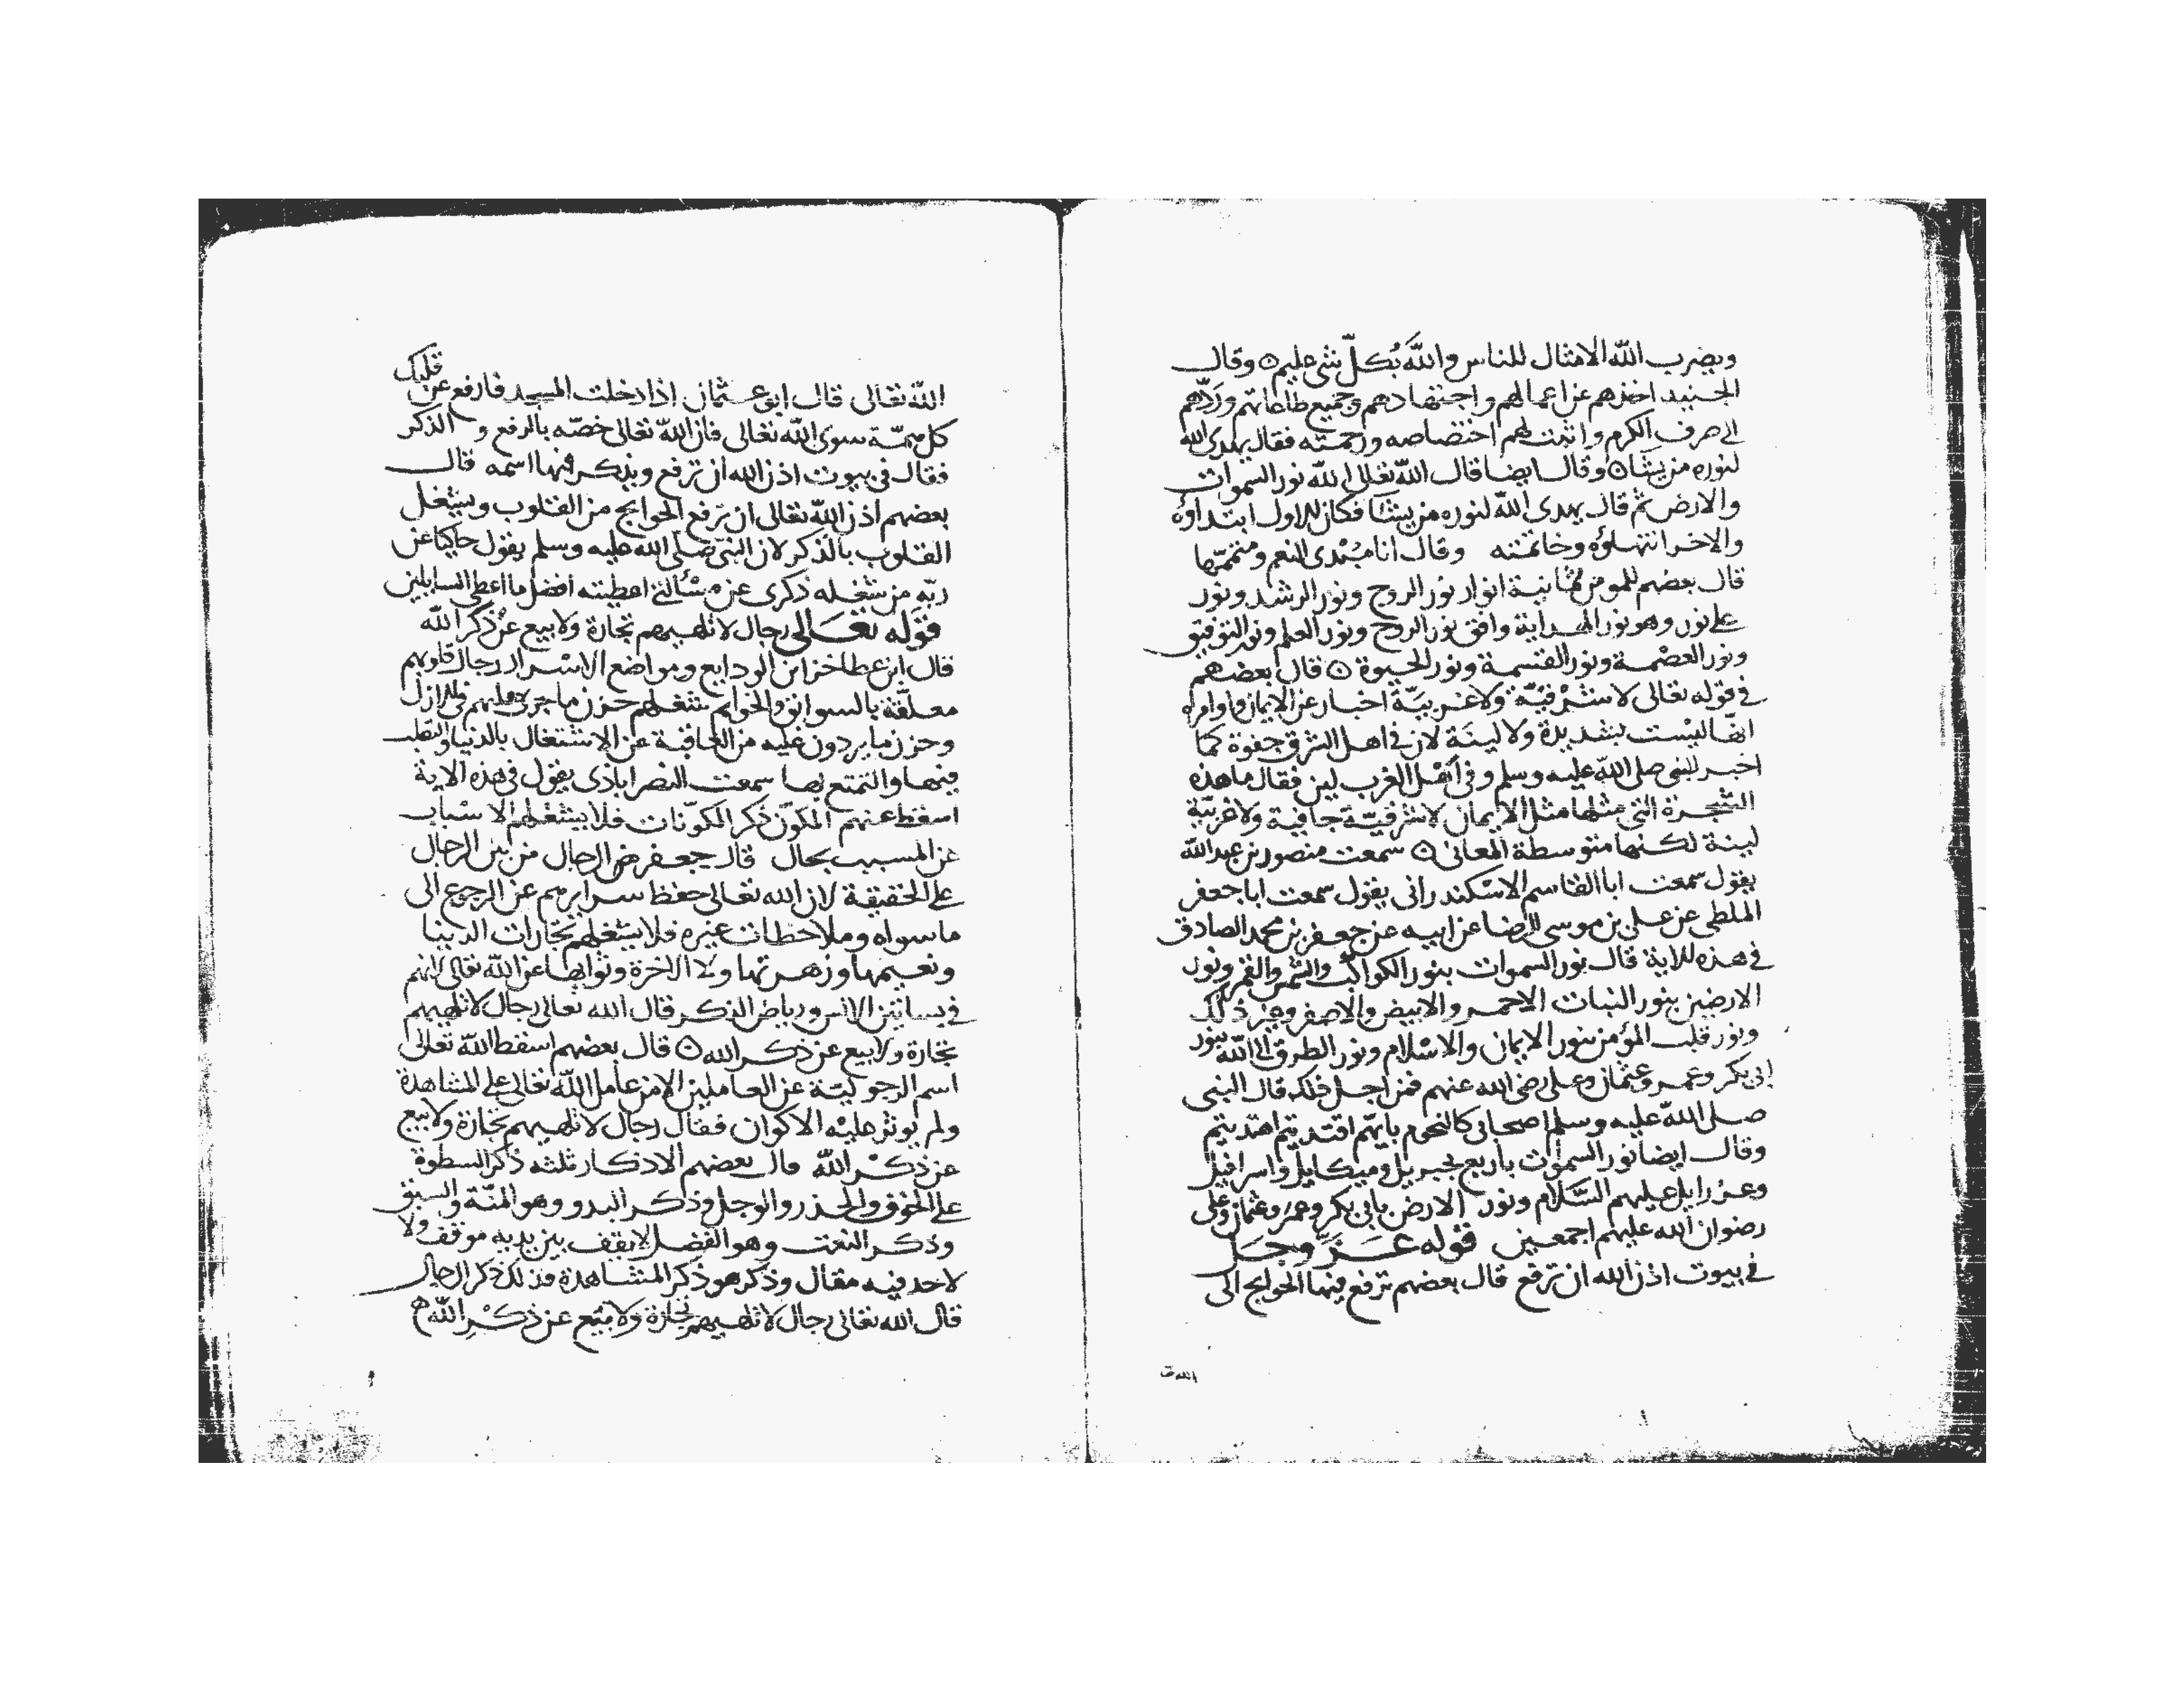 ويضرب الله الامثال للناس والله بكل شئ عليم ۞ وقال
الجنيد اخذهم عن اعمالهم واجتهادهم وجميع طاعاتهم وردهم
الى صرف الكرم واثبت لهم اختصاصه ورحمته فقال يهدى الله
لنوره من يشا ۞ وقال ايضا قال الله تعالى الله نور السموات
والارض ثم قال يهدى الله لنوره من يشا فكان للاول ابتداؤه
والاخر انتهاؤه وخاتمته وقال انا مبدى النعم ومتممها
قال بعضهم للمومن ثمانية انوار نور الروح ونور الرشد ونور
على نور وهو نور الهداية وافق نور الروح ونور العلم ونور التوفيق
ونور العصمة ونور القسمة ونور الحيوة ۞ قال بعضهم
فى قوله تعالى لا شرقية ولا غربية اخبار عن الايمان واوامره
انها ليست بشديدة ولا لينة لان فى اهل الشرق جفوة كما
اخبر النبى صلى الله عليه وسلم وفى اهل الغرب لين فقال ما هذه
الشجرة التى مثلها مثل الايمان لا شرقية جافية ولا غربية
لينة لكنها متوسطة المعانى ۞ سمعت منصور بن عبد الله
يقول سمعت ابا القاسم الاسكندرانى يقول سمعت ابا جعفر
الملطى عن على بن موسى الرضا عن ابيه عن جعفر بن محمد الصادق
فى هذه الاية قال نور السموات بنور الكواكب والشمس والقمر ونور
الارضين بنور النبات الاحمر والابيض والاصفر وغير ذلك
ونور قلب المؤمن بنور الايمان والاسلام ونور الطرق الى الله بنور
ابى بكر وعمر وعثمان وعلى رضى الله عنهم فمن اجل ذلك قال النبى
صلى الله عليه وسلم اصحابى كالنجوم بايهم اقتديتم اهتديتم
وقال ايضا نور السموات باربع بجبريل وميكايل واسرافيل
وعزرايل عليهم السلام ونور الارض بابى بكر وعمر وعثمان وعلى
رضوان الله عليهم اجمعين قوله عز وجل
فى بيوت اذن الله ان ترفع قال بعضهم ترفع فيها الحوايج الى
الله ت
الله تعالى قال ابو عثمان اذا دخلت المسجد فارفع عن قلبك
كل همة سوى الله تعالى فان الله تعالى خصه بالرفع و الذكر
فقال فى بيوت اذن الله ان ترفع ويذكر فيها اسمه قال
بعضهم اذن الله تعالى ان ترفع الحوايج من القلوب ويشتغل
القلوب بالذكر لان النبى صلى الله عليه وسلم يقول حاكيا عن
ربه من شغله ذكرى عن مسألتى اعطيته افضل ما اعطى السايلين
قوله تعالى رجال لا تلهيهم تجارة ولا بيع عن ذكر الله
قال ابن عطا خزاين الودايع ومواضع الاسرار رجال قلوبهم
معلقة بالسوابق والخواتم شغلهم حزن ما جرى عليهم فى الازل
وحزن ما يردون عليه من العاقبة عن الاشتغال بالدنيا والتقلب
فيها والتمتع بها سمعت النصراباذى يقول فى هذه الاية
اسقط عنهم المكون ذكر المكونات فلا يشغلهم الاسباب
عن المسبب بحال قال جعفر هم الرجال من بين الرجال
على الحقيقة لان الله تعالى حفظ سرايرهم عن الرجوع الى
ما سواه وملاحظات غيره فلا يشغلهم تجارات الدنيا
ونعيمها وزهرتها ولا الاخرة وثوابها عن الله تعالى لانهم
فى بساتين الانس ورياض الذكر قال الله تعالى رجال لا تلهيهم
تجارة ولا بيع عن ذكر الله ۞ قال بعضهم اسقط الله تعالى
اسم الرجولية عن العاملين الا من عامل الله تعالى على المشاهدة
ولم يوثر عليه الاكوان فقال رجال لا تلهيهم تجارة ولا بيع
عن ذكر الله قال بعضهم الاذكار ثلثه ذكر السطوة
على الخوف والحذر والوجل وذكر البدو وهو المنة والسبق
وذكر النعت وهو الفضل لا يقف بين يديه موقف ولا
لاحد فيه مقال وذكر هو ذكر المشاهدة فذلك ذكر الرجال
قال الله تعالى رجال لا تلهيهم تجارة ولا بيع عن ذكر الله